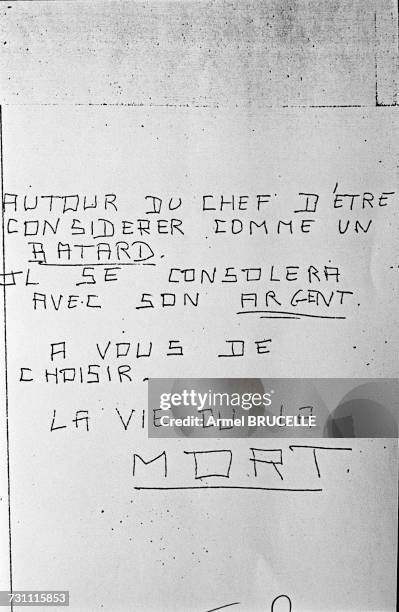 AUTOUR DU CHEF D'ÊTRE
CONSIDERER COMME UN
BATARD.
IL SE CONSOLERA
AVEC SON ARGENT.
A VOUS DE
CHOISIR.
LA VIE OU LA
gettyimages
Armel BRUCELLE
MORT.
731115853